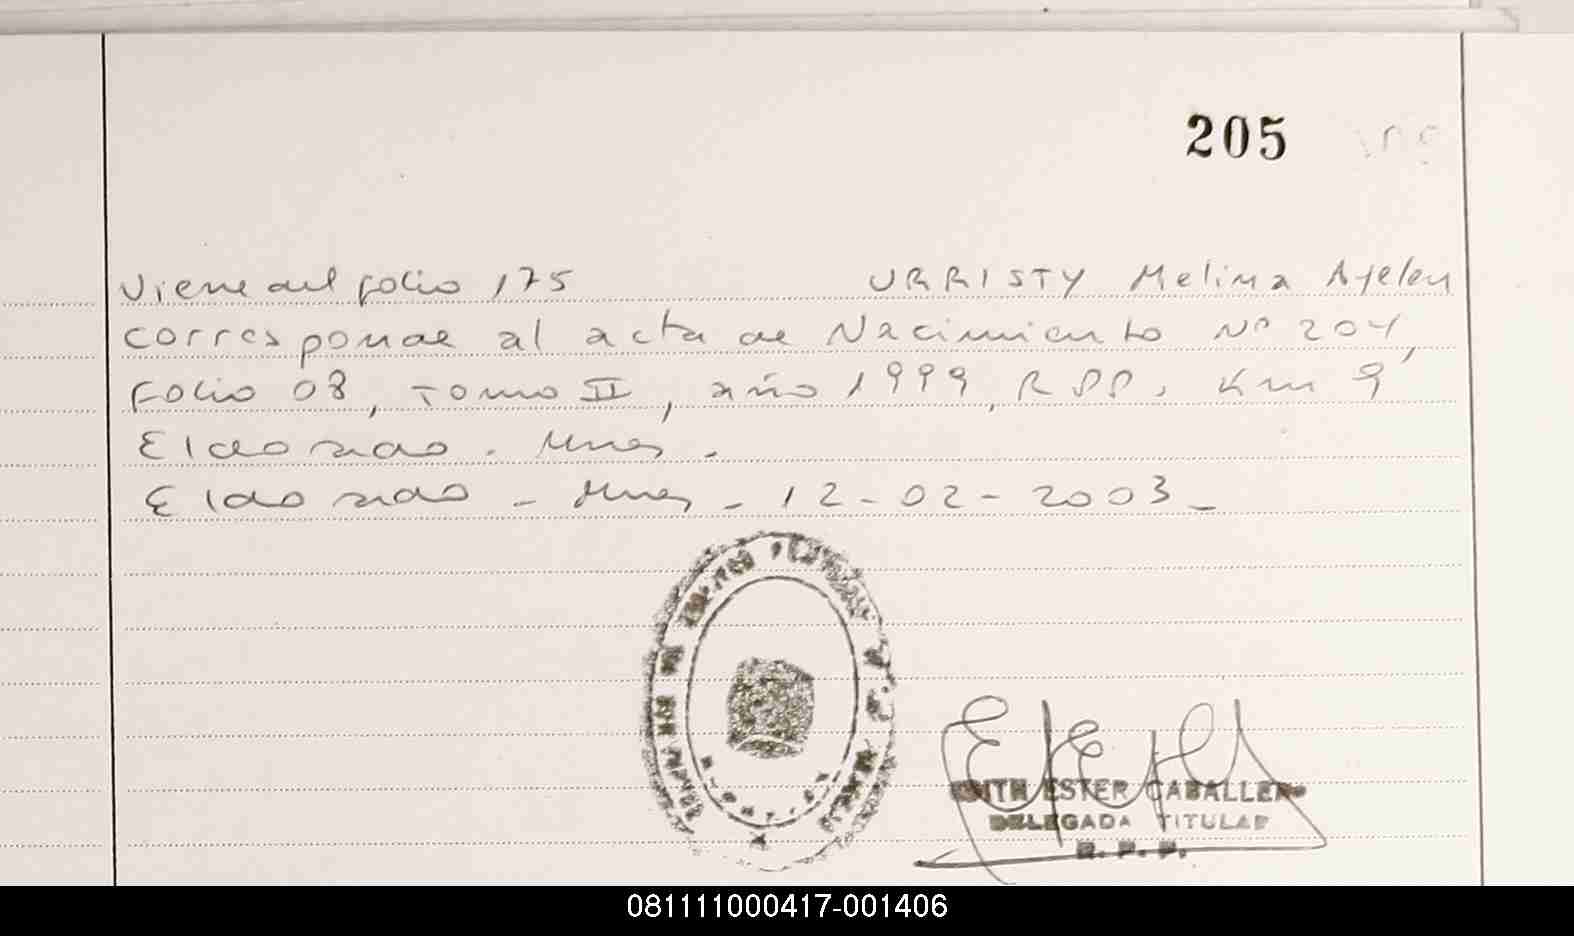 205
Viene del folio 175 URRISTY Melina Ayelen
corresponde al acta de Nacimiento Nº 204,
Folio 08, Tomo II, año 1999, RPP. Km 9
Eldorado. Mnes.
Eldorado - Mnes - 12-02-2003-
EDITH ESTER CABALLERO
DELEGADA TITULAR
R. P. P.
081111000417-001406